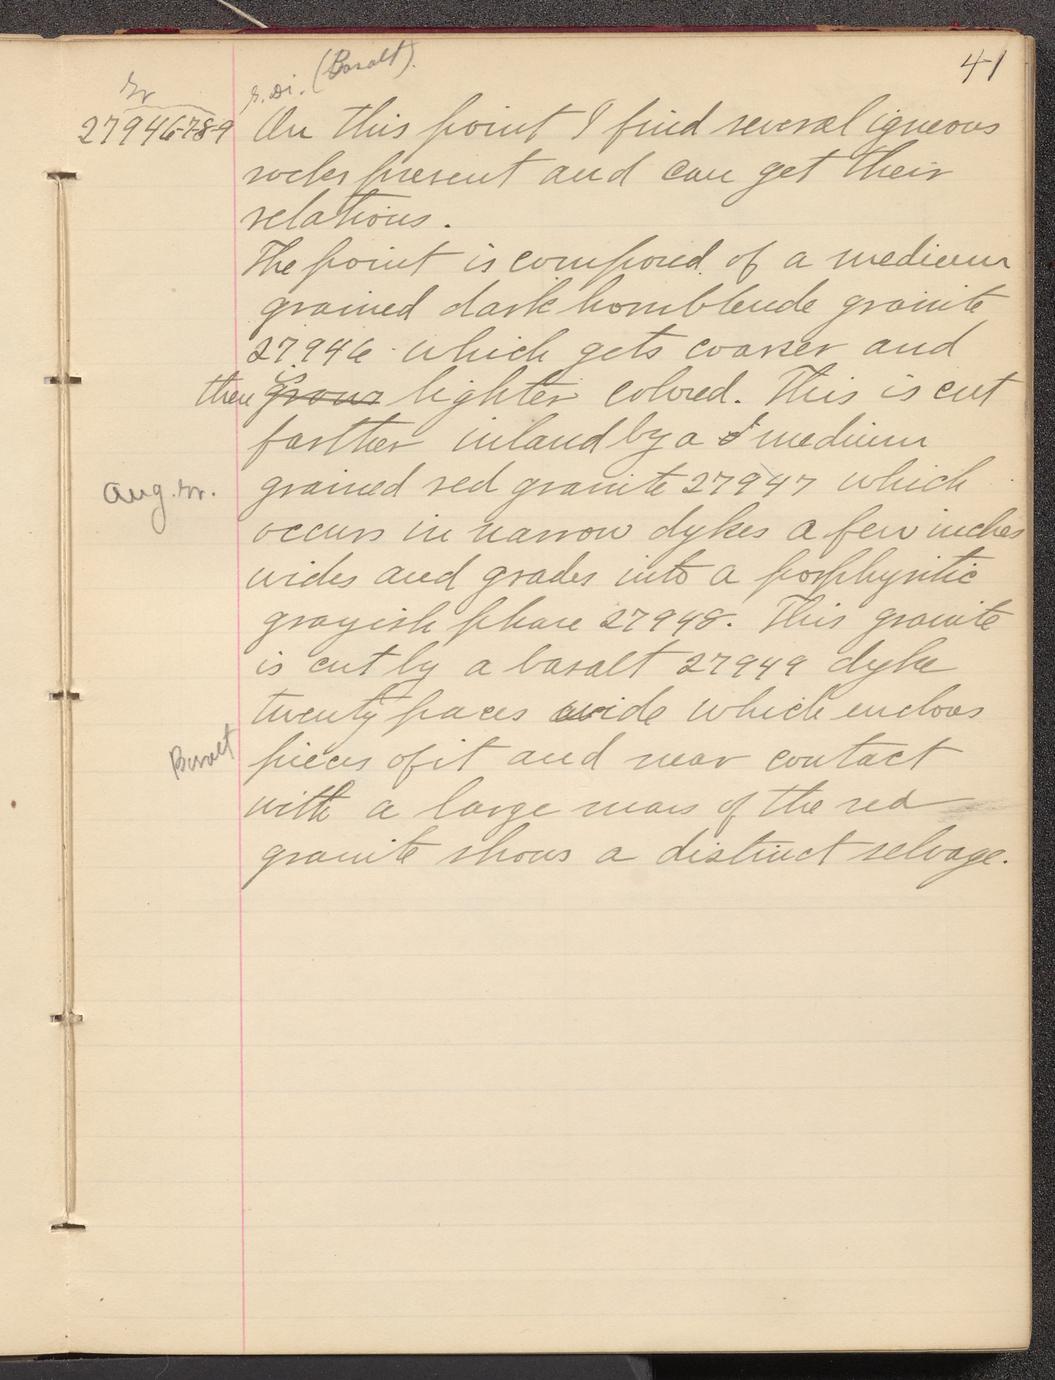 41
(Basalt).
27946-7-8-9 On this point I find several igneous
rocks present and can get their
relations.
The point is composed of a medium
grained dark hornblende granite
27946 which gets coarser and
then is grows lighter colored. This is cut
farther inland by a medium
grained red granite 27947 which
Aug. gr.
occurs in narrow dykes a few inches
wides and grades into a porphyritic
grayish phase 27948. This granite
is cut by a basalt 27949 dyke
twenty paces wide which encloses
Basalt
pieces of it and near contact
with a large mass of the red
granite shows a distinct selvage.